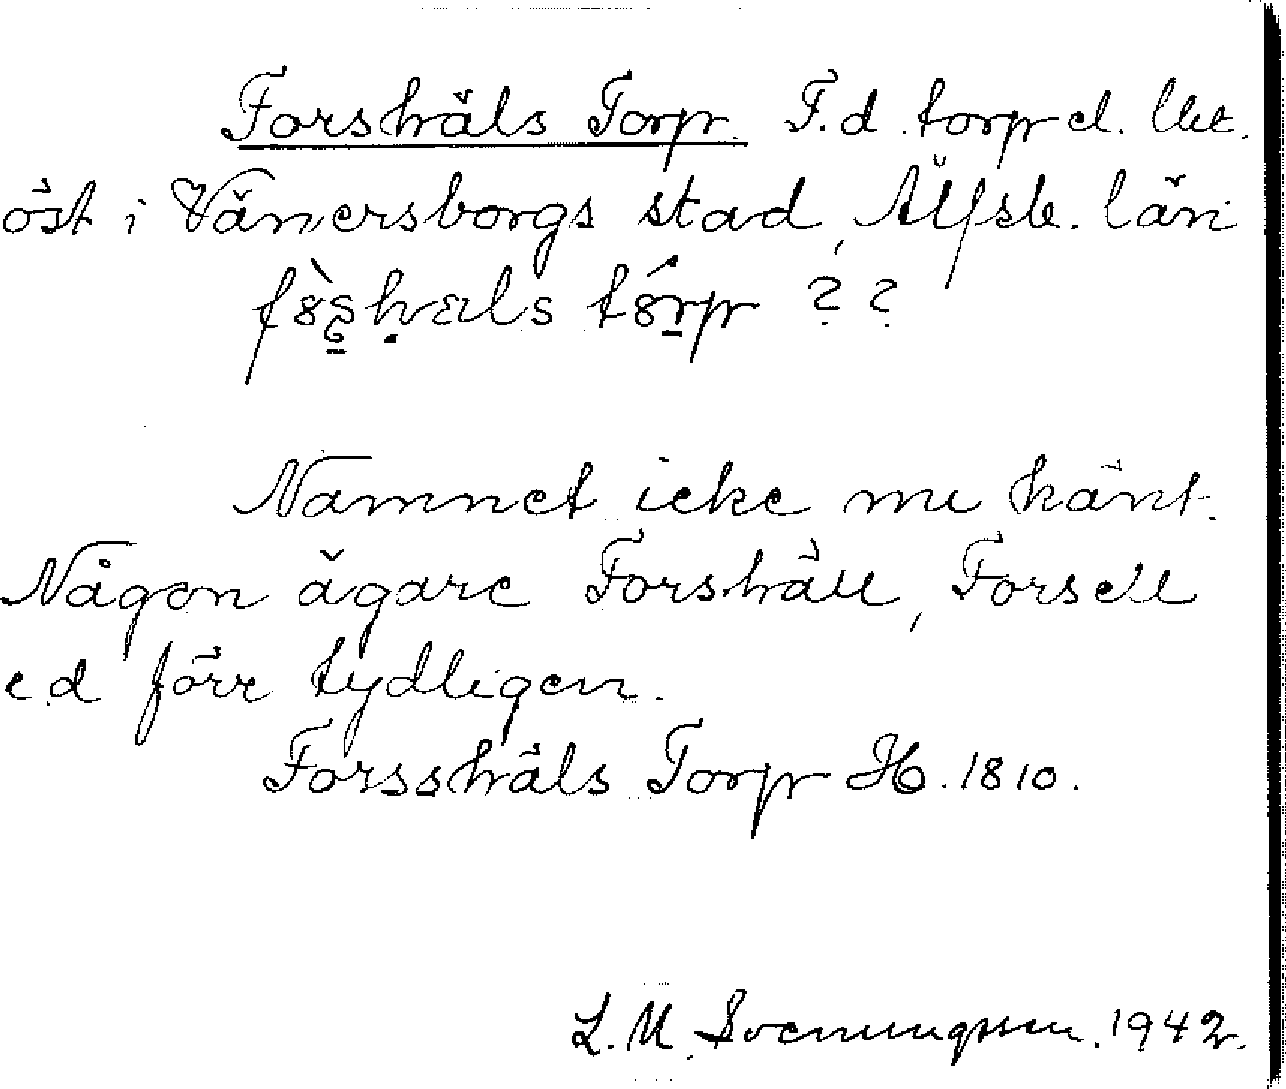 Forshäls Torp. F.d. torp el. lht.
öst i Vänersborgs stad, Älfsb. län
Namnet icke nu känt.
Någon ägare Forshäll, Forsell
e.d förr tydligen.
Forsshäls Torp Hb. 1810.
L. M. Svenungsson. 1942.